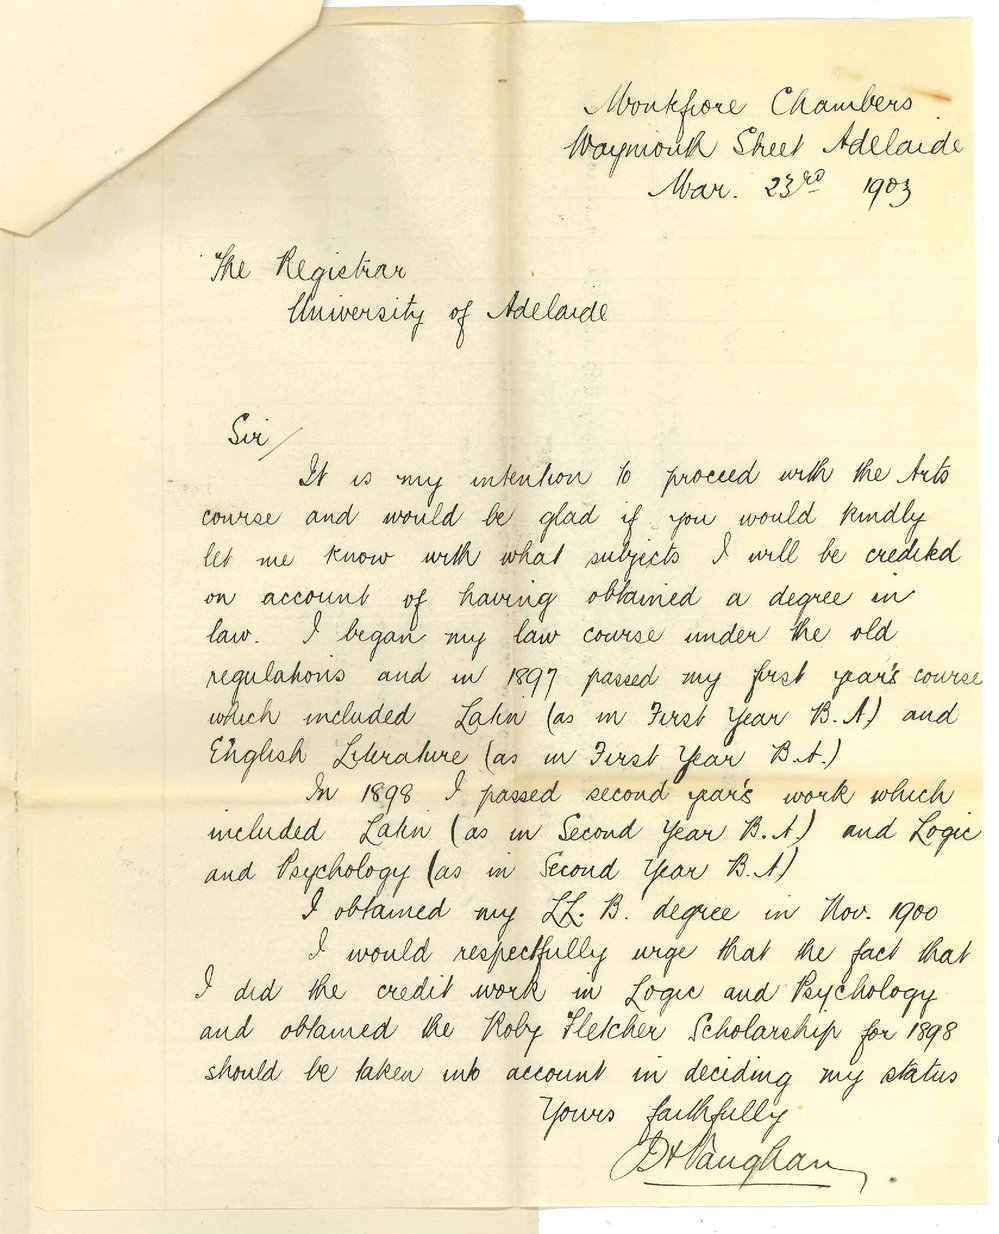 Montefiore Chambers
Waymouth Street Adelaide
Mar. 23rd 1903
The Registrar
University of Adelaide
Sir/
It is my intention to proceed with the Arts
course and would be glad if you would kindly
let me know with what subjects I will be credited
on account of having obtained a degree in
law. I began my law course under the old
regulations and in 1897 passed my first year's course
which included Latin (as in First Year B.A) and
English Literature (as in First Year B.A.)
In 1898 I passed second year's work which
included Latin (as in Second Year B.A) and Logic
and Psychology (as in Second Year B.A)
I obtained my LL.B. degree in Nov. 1900
I would respectfully urge that the fact that
I did the credit work in Logic and Psychology
and obtained the Roby Fletcher Scholarship for 1898
should be taken into account in deciding my status
Yours faithfully
JH Vaughan